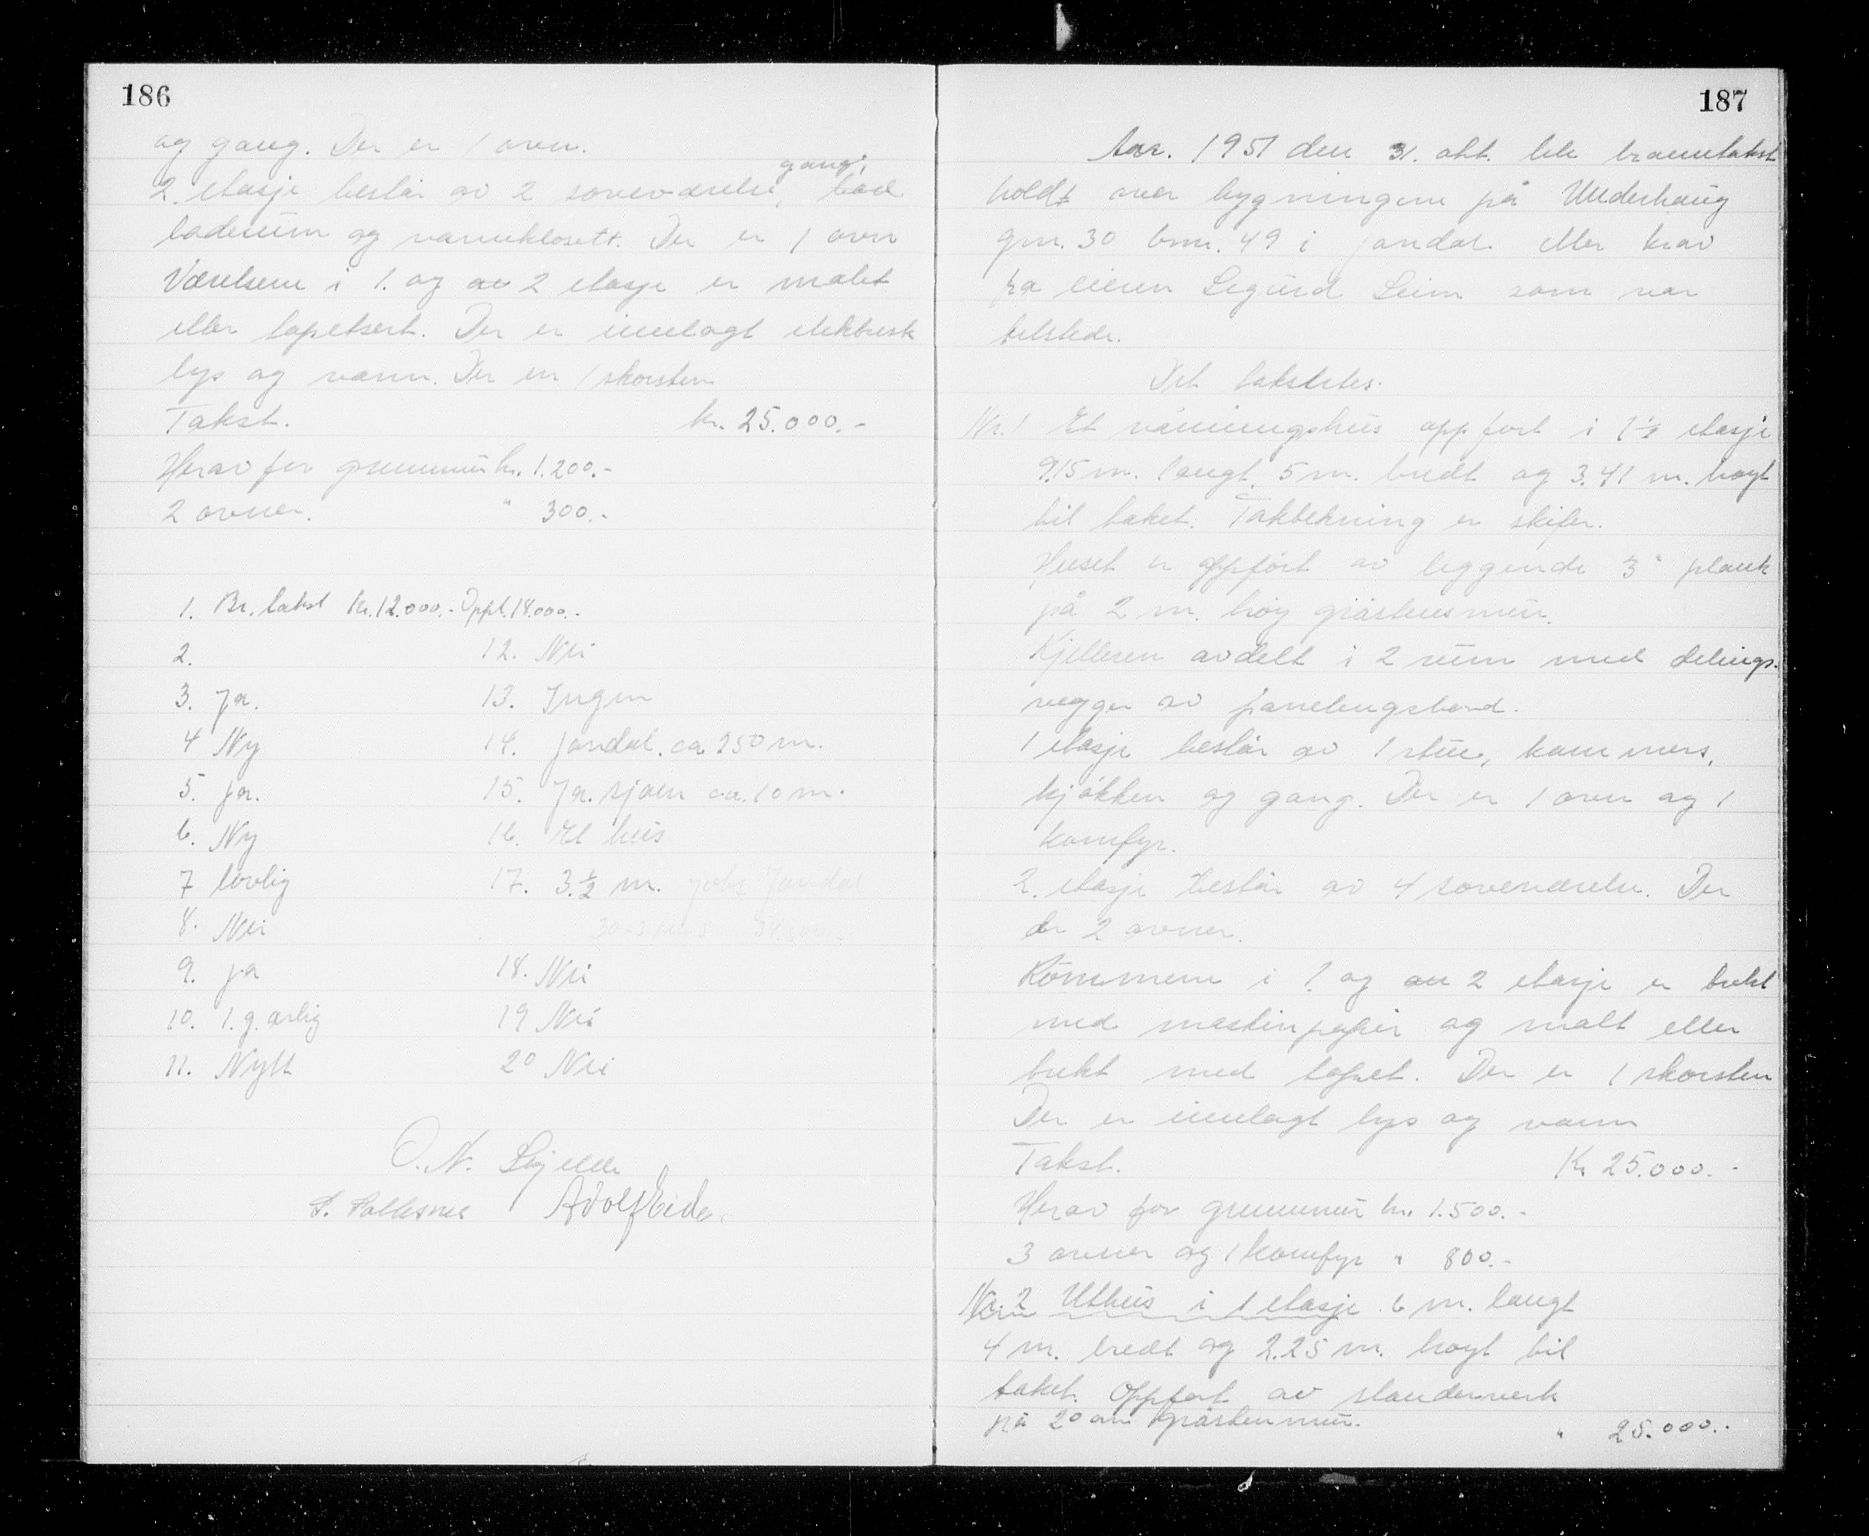 186
og gang. Der er 1 ovn.
2. etasje består av 2 soveværelse, gang, bod
baderum og vannklosett. Der er 1 ovn
Værelsene i 1. og av 2 etasje er malet
eller tapetsert. Der er innlagt elektrisk
lys og vann. Der er 1 skorsten
Takst. kr. 25.000.-
Herav for grunnmur kr. 1.200.-
2 ovner. " 300.-
1. Br. takst Kr. 12.000.- Oppt. 18.000.-
2. 12. Nei
3. Ja. 13. Ingen
4 Ny 14. Jondal. ca 250 m.
5. Ja. 15. Ja. sjøen ca. 10 m.
6. Ny 16. Et hus
7 lovlig 17. 3.½ m. Jondal
8. Nei
9. Ja 18. Nei
10. 1. g. årlig 19 Nei
11. Nytt 20 Nei
O. N.
Adolf Eide.
187
Aar. 1951 den 31. okt. ble branntakst
holdt over bygningene på Underhaug
gnr. 30 bnr. 49 i Jondal etter krav
fra eieren Sigurd Leim som var
tilstede.
Det taksteres.
Nr. 1 Et våningshus oppført i 1½ etasje
9.15 m. langt, 5 m. bredt og 3.41 m. høyt
til taket. Takbekning er skifer.
Huset er oppført av liggende 3" plank
på 2 m. høy gråstensmur.
Kjelleren avdelt i 2 rum med delings-
vegger av panelingsbord.
1 etasje består av 1 stue, kammers,
kjøkken og gang. Der er 1 ovn og 1
komfyr.
2. etasje består av 4 soveværelse. Der
er 2 ovner.
Rommene i 1. og av 2 etasje er trekt
med maskinpapir og malt eller
trekt med tapet. Der er 1 skorsten
Der er innlagt lys og vann
Takst. Kr 25.000.-
Herav for grunnmur kr. 1.500.-
3 ovner og 1 komfyr " 800.-
Nr. 2 Uthus i 1 etasje 6 m. langt
4 m. bredt og 2.25 m. høyt til
taket. Oppført av standerverk
på 20 cm gråstenmur. " 25.000.-